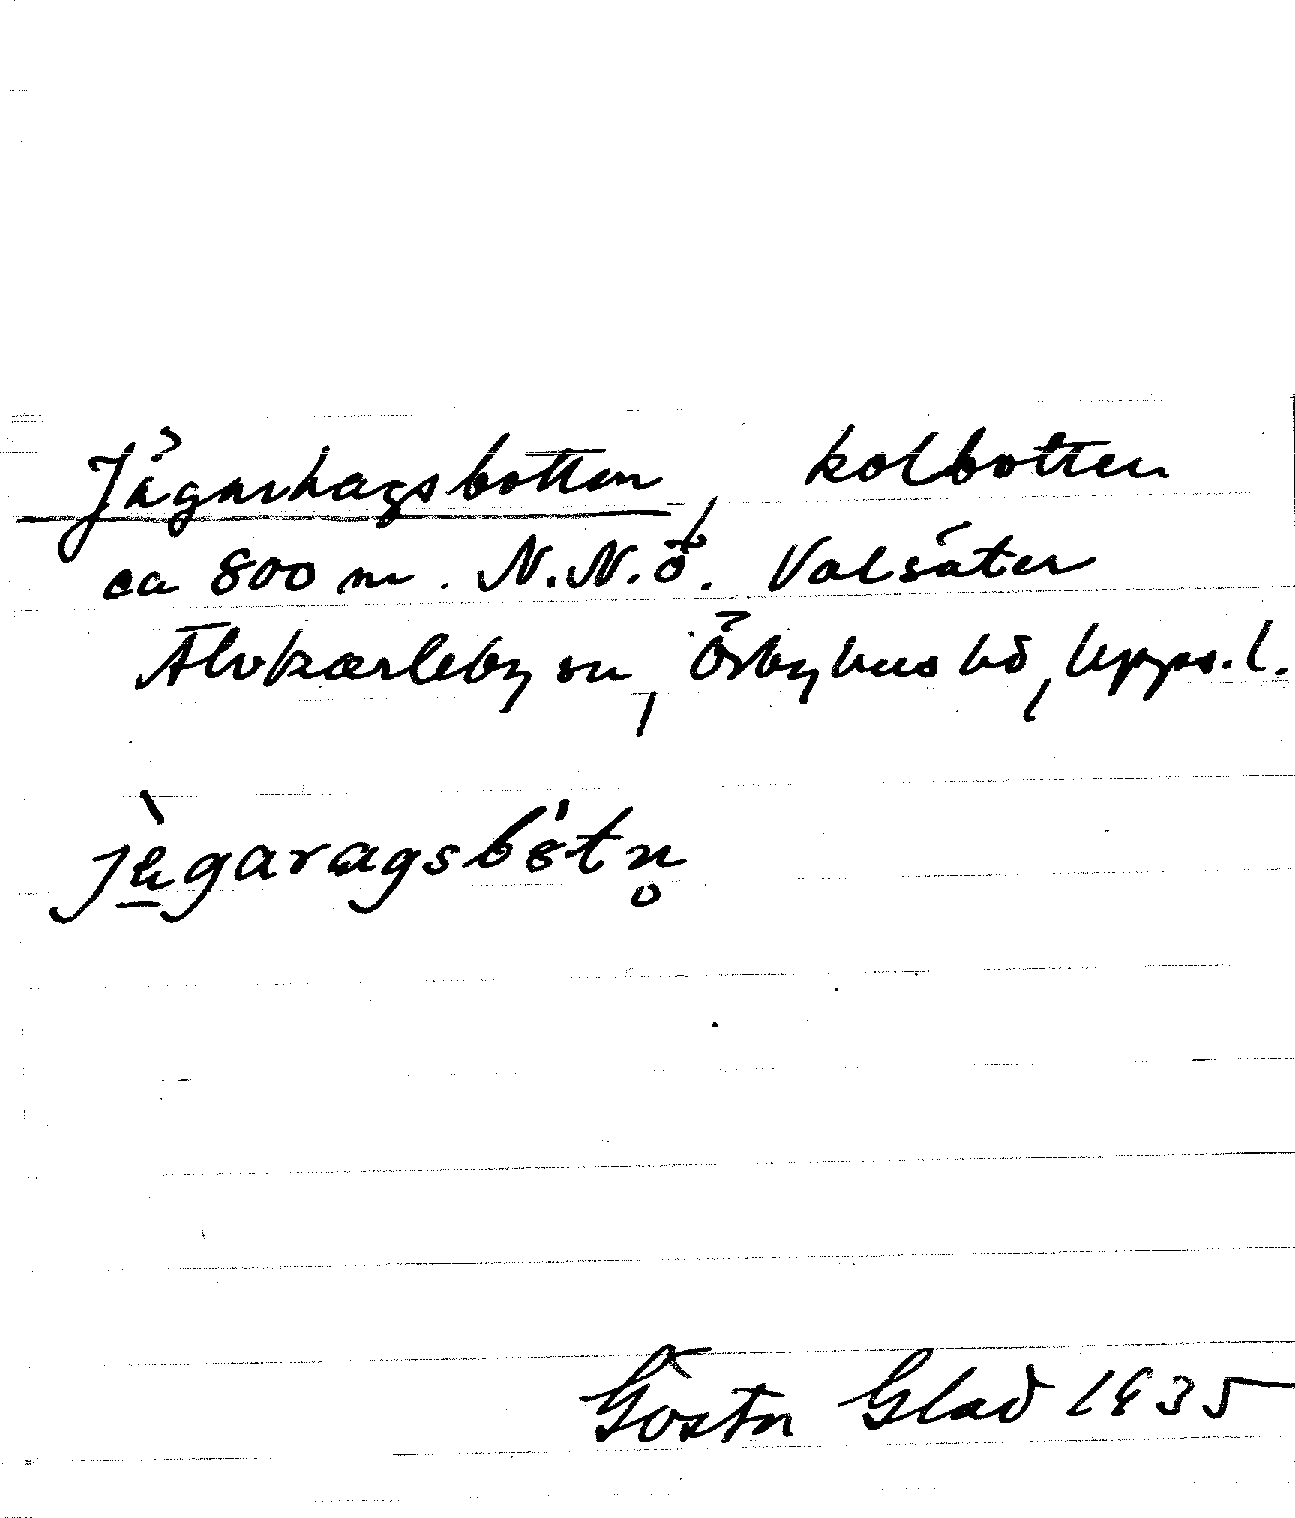 Jägarhagsbotten, kolbotten
ca 800 m. N.N.Ö. Valsäter
Älvkarleby sn, Örbyhus hd, Upps.l.
jä̀garagsbótn̥
Gösta Glad 1935